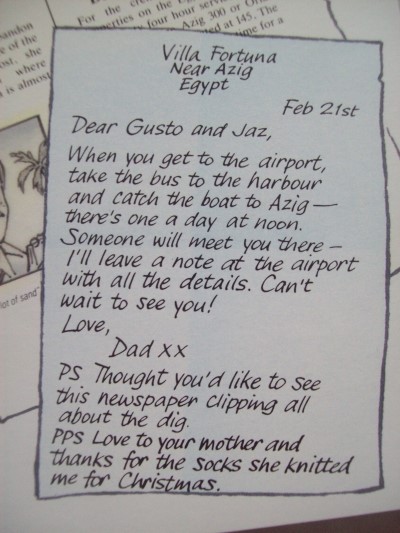 For the
four hour
Azig 300 or
at 145. The
time for a
of the
she
where
is almost
lot of sand"
Villa Fortuna
Near Azig
Egypt
Feb 21st
Dear Gusto and Jaz,
When you get to the airport,
take the bus to the harbour
and catch the boat to Azig —
there's one a day at noon.
Someone will meet you there –
I'll leave a note at the airport
with all the details. Can't
wait to see you!
Love,
Dad xx
PS Thought you'd like to see
this newspaper clipping all
about the dig.
PPS Love to your mother and
thanks for the socks she knitted
me for Christmas.